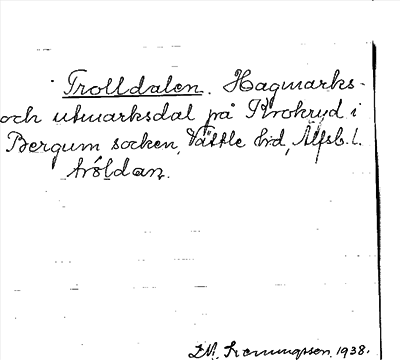 Trolldalen. Hagmarks-
och utmarksdal på Krokryd i
Bergum socken, Vättle hd, Älfsb. l.
tróldan.
1938.